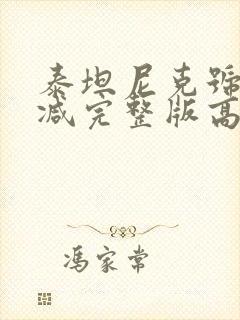 泰坦尼克號
减完整版高
馮家常